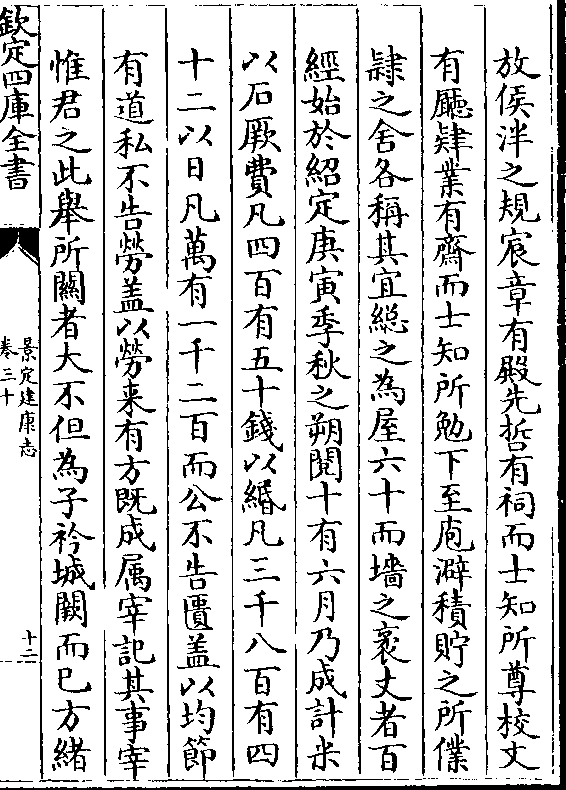 放侯泮之規宸章有殿先哲有祠而士知所尊校文
有廳肄業有齋而士知所勉下至庖湢積貯之所僕
隸之舍各稱其宜緫之為屋六十而墻之袤丈者百
經始於紹定庚寅季秋之朔閱十有六月乃成計米
以石厥費凡四百有五十錢以緡凡三千八百有四
十二以日凡萬有一千二百而公不告匱盖以均節
有道私不告勞盖以勞来有方既成属宰記其事宰
惟君之此舉所關者大不但為子衿城闕而已方緒
欽定四庫全書
景定建康志
卷三十
十二